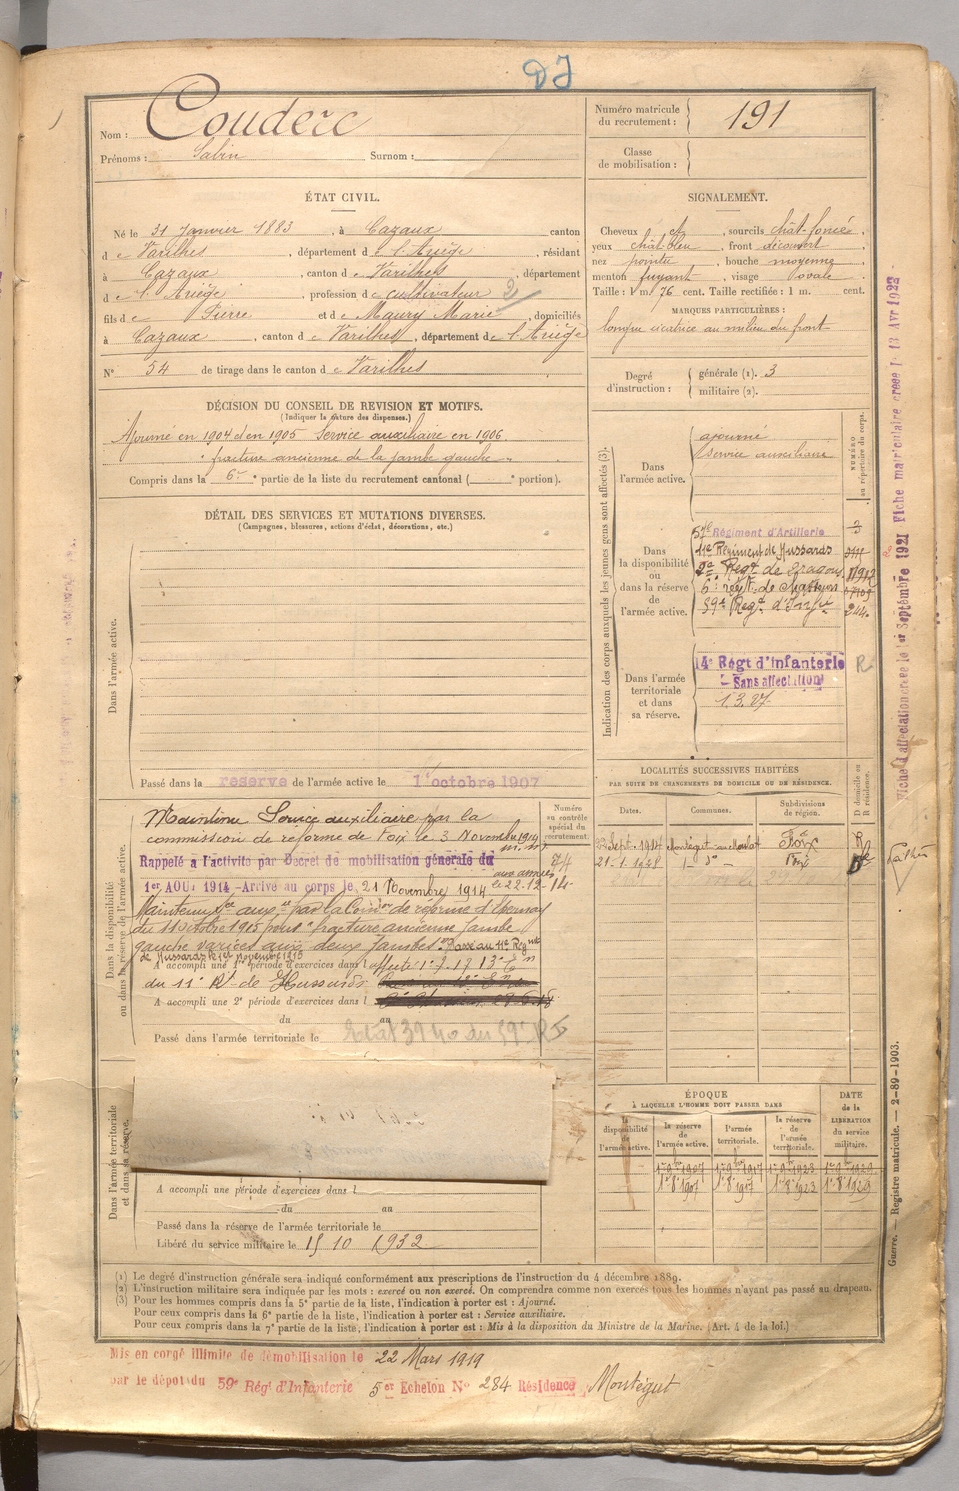 DJ
Nom : Couderc
Prénoms : Sabin Surnom :
Numéro matricule du recrutement : 191
Classe de mobilisation :
ÉTAT CIVIL.
Né le 31 Janvier 1883, à Cazaux canton
de Varilhes, département de l'Ariège, résidant
à Cazaux, canton de Varilhes, département
de l'Ariège, profession de cultivateur 2
fils de Pierre et de Maury Marie, domiciliés
à Cazaux, canton de Varilhes, département de l'Ariège
N° 54 de tirage dans le canton de Varilhes
SIGNALEMENT.
Cheveux et, sourcils chât-foncé,
yeux chât-bleu, front découvert,
nez pointu, bouche moyenne,
menton fuyant, visage ovale
Taille : 1 m. 76 cent. Taille rectifiée : 1 m. cent.
MARQUES PARTICULIÈRES :
longue cicatrice au milieu du front
Degré d'instruction : générale (1). 3
militaire (2).
DÉCISION DU CONSEIL DE REVISION ET MOTIFS.
(Indiquer la nature des dispenses.)
Ajourné en 1904 et en 1905 Service auxiliaire en 1906
" fracture ancienne de la jambe gauche "
Compris dans la 6e partie de la liste du recrutement cantonal ( e portion).
DÉTAIL DES SERVICES ET MUTATIONS DIVERSES.
(Campagnes, blessures, actions d'éclat, décorations, etc.)
Dans l'armée active.
Passé dans la réserve de l'armée active le 1er octobre 1907
Indication des corps auxquels les jeunes gens sont affectés (3).
NUMÉRO au répertoire du corps.
Dans l'armée active.
ajourné
service auxiliaire
Dans la disponibilité ou dans la réserve de l'armée active.
57e Régiment d'Artillerie
11e Régiment de Hussards
2e Régt de Dragons
6e régt de
59e Regt d'Infie 244
Dans l'armée territoriale et dans sa réserve.
14e Régt d'Infanterie R
Sans affectation
1.3.27
LOCALITÉS SUCCESSIVES HABITÉES
PAR SUITE DE CHANGEMENTS DE DOMICILE OU DE RÉSIDENCE.
Dates. Communes. Subdivisions de région. D domicile ou R résidence.
22 Sept. 1914 Foix R
21.1.1928 d° Foix D
Dans la disponibilité ou dans la réserve de l'armée active.
Numéro au contrôle spécial du recrutement.
Maintenu Service auxiliaire par la
commission de réforme de Foix le 3 Novembre 1914
Rappelé à l'activité par Décret de mobilisation générale du
1er AOUT 1914 - Arrivé au corps le 21 Novembre 1914 aux armées le 22-12-14
Maintenu sce auxre par la Comion de réforme d'Epernay
du 11 octobre 1915 pour " fracture ancienne jambe
gauche varices aux deux jambes". Passé au 11e Régnt
de Hussards le 1er novembre 1915
A accompli une 1re période d'exercices dans l affecté
du 11e Rt de Hussards
A accompli une 2e période d'exercices dans l
du au
Passé dans l'armée territoriale le
Dans l'armée territoriale et dans sa réserve.
A accompli une période d'exercices dans l
du au
Passé dans la réserve de l'armée territoriale le
Libéré du service militaire le 15 10 1932
ÉPOQUE
À LAQUELLE L'HOMME DOIT PASSER DANS
la disponibilité de l'armée active. la réserve de l'armée active. l'armée territoriale. la réserve de l'armée territoriale.
DATE de la LIBÉRATION du service militaire.
1er 9bre 1907 1er 9bre 1917 1er 9bre 1923 1er 9bre 1929
1er 8bre 1907 1er 8bre 1917 1er 8bre 1923 1er 8bre 1929
(1) Le degré d'instruction générale sera indiqué conformément aux prescriptions de l'instruction du 4 décembre 1889.
(2) L'instruction militaire sera indiquée par les mots : exercé ou non exercé. On comprendra comme non exercés tous les hommes n'ayant pas passé au drapeau.
(3) Pour les hommes compris dans la 5e partie de la liste, l'indication à porter est : Ajourné.
Pour ceux compris dans la 6e partie de la liste, l'indication à porter est : Service auxiliaire.
Pour ceux compris dans la 7e partie de la liste, l'indication à porter est : Mis à la disposition du Ministre de la Marine. (Art. 4 de la loi.)
Mis en congé illimité de démobilisation le 22 Mars 1919
par le dépôt du 59e Régt d'Infanterie 5e Echelon N° 284 Résidence Montégut
Fiche d'affectation créée le 1er Septembre 1921 Fiche matriculaire créée le 13 Avr 1922
Guerre. — Registre matricule. — 2-89-1903.